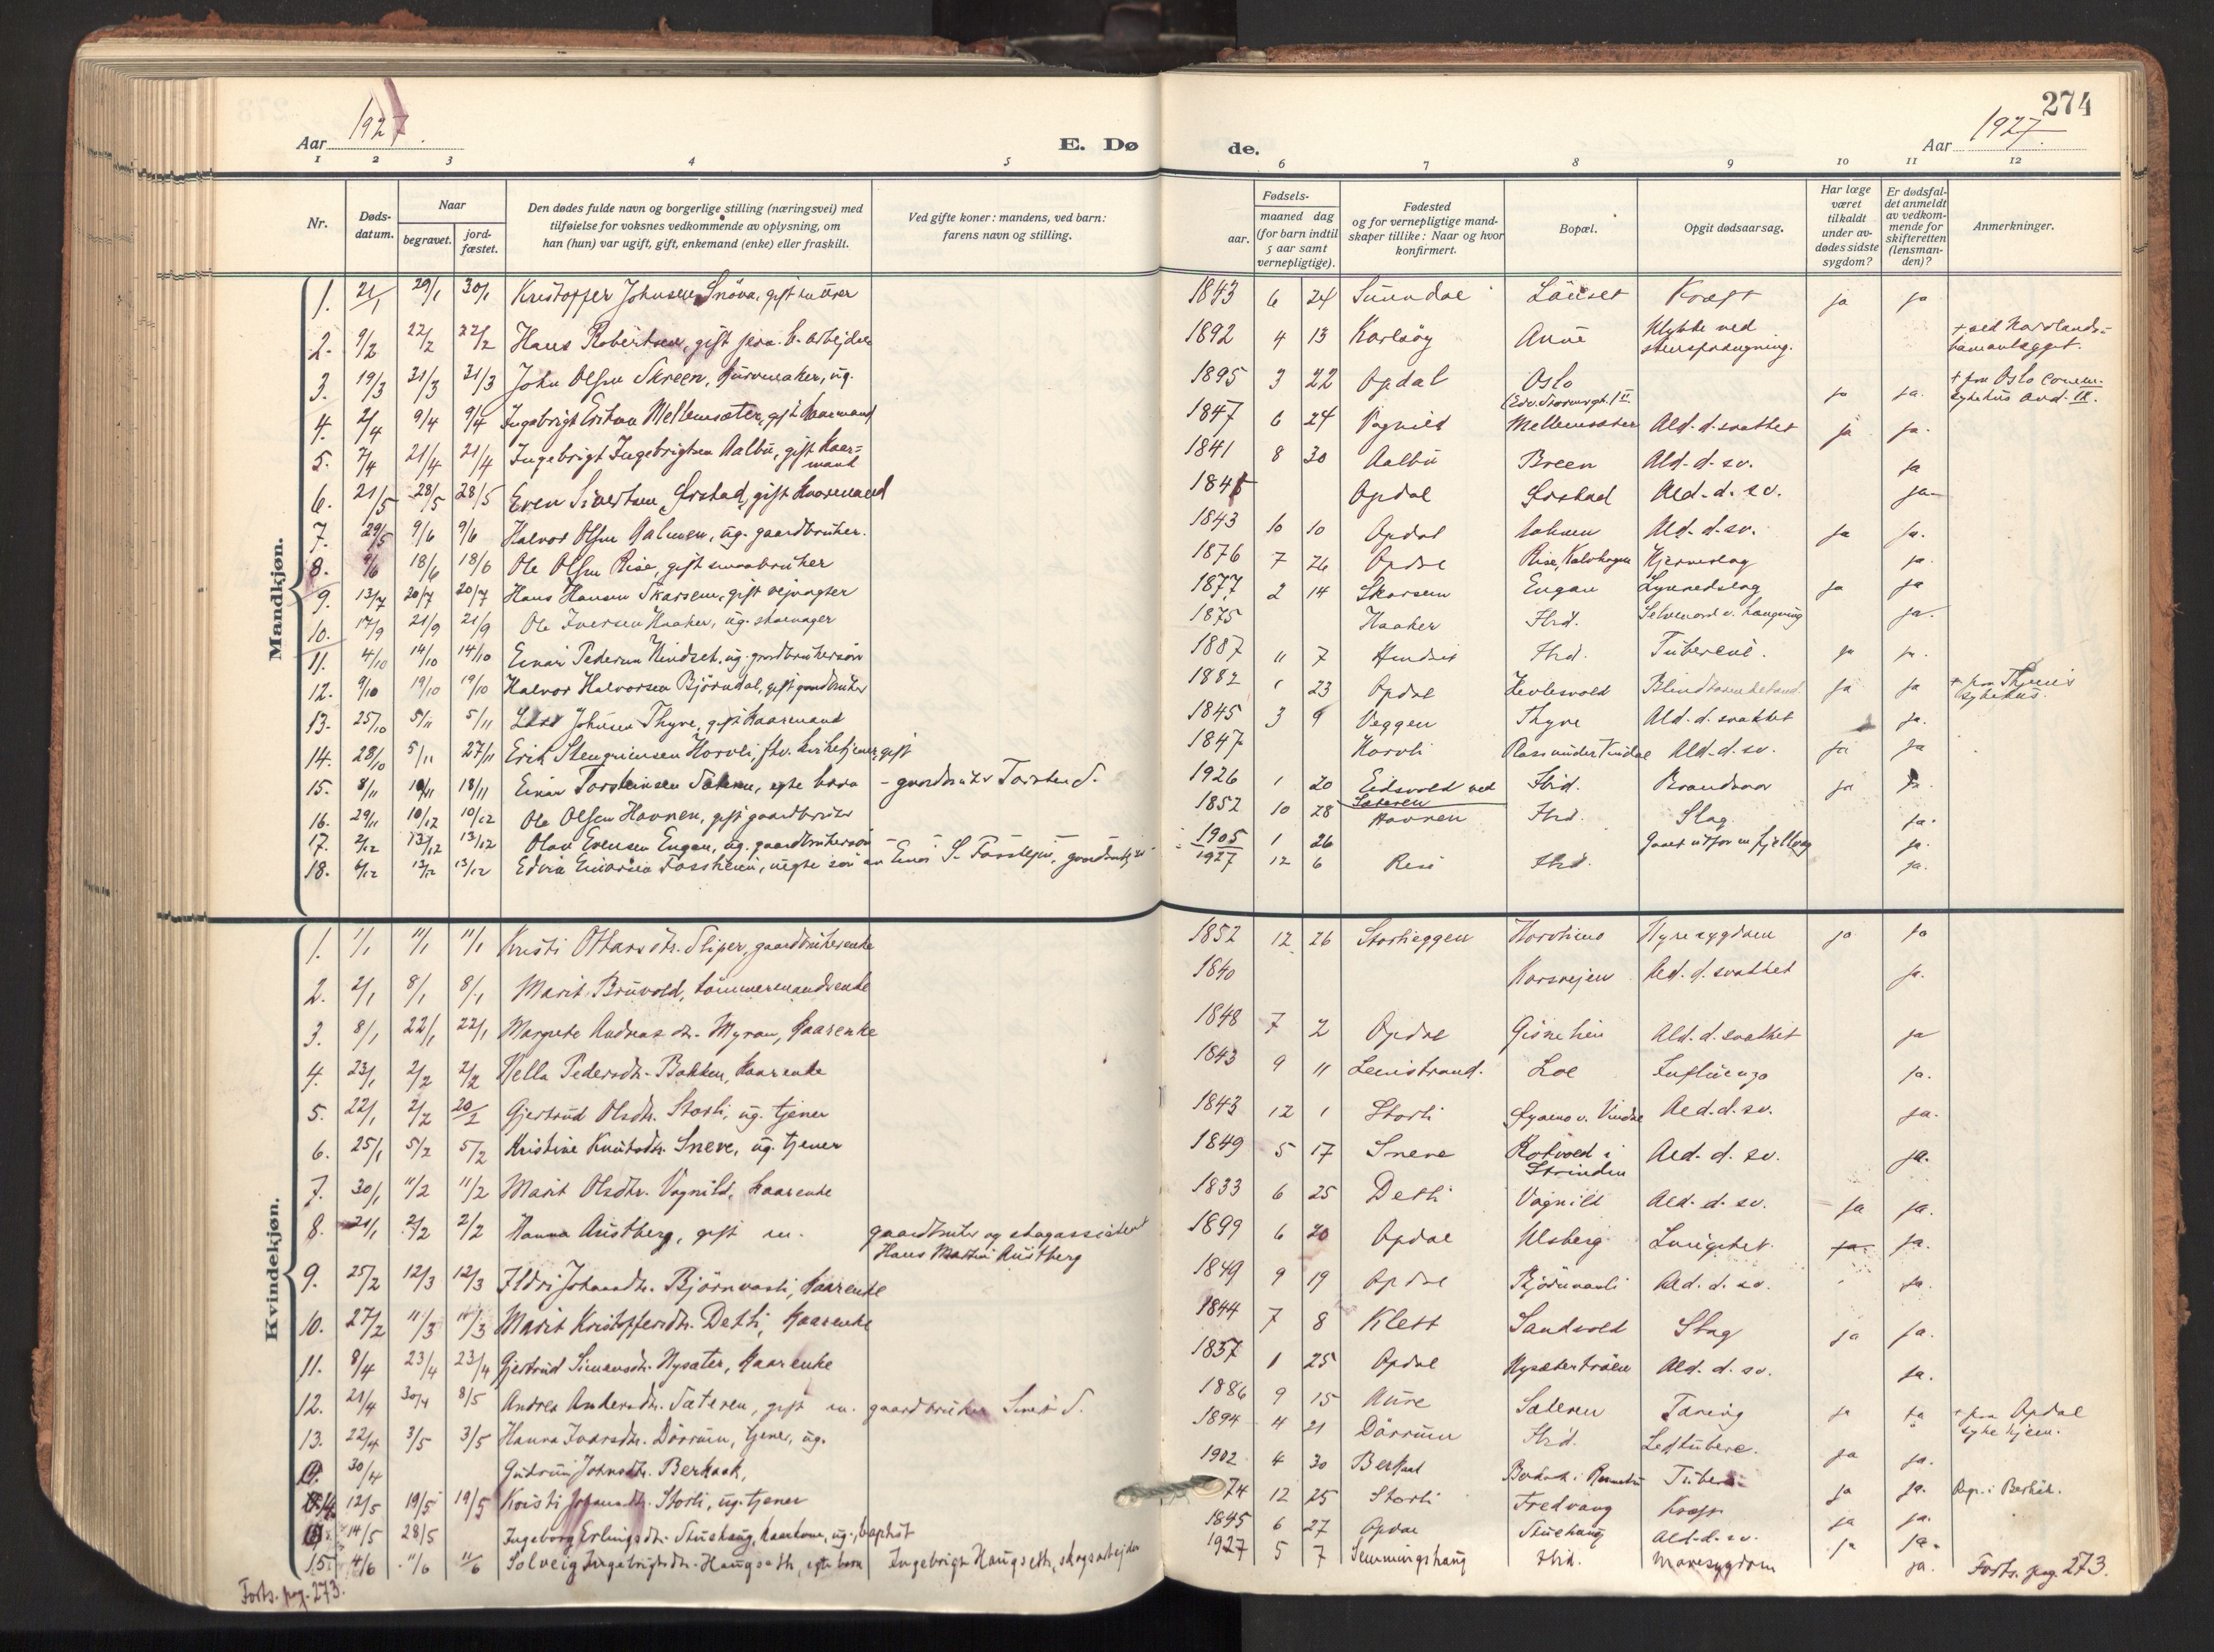 274
Aar 1927.
E. Dø
de.
Aar 1927.
1 2 3 4 5 6 7 8 9 10 11 12
Nr.
Døds-
datum.
Naar
begravet.
jord-
fæstet.
Den dødes fulde navn og borgerlige stilling (næringsvei) med
tilføielse for voksnes vedkommende av oplysning, om
han (hun) var ugift, gift, enkemand (enke) eller fraskilt.
Ved gifte koner: mandens, ved barn:
farens navn og stilling.
Fødsels-
aar.
maaned dag
(for barn indtil
5 aar samt
vernepligtige).
Fødested
og for vernepligtige mand-
skaper tillike: Naar og hvor
konfirmert.
Bopæl.
Opgit dødsaarsag.
Har læge
været
tilkaldt
under av-
dødes sidste
sygdom?
Er dødsfal-
det anmeldt
av vedkom-
mende for
skifteretten
(lensman-
den)?
Anmerkninger.
Mandkjøn.
1. 21/1 29/1 30/1 Kristoffer Johnsen Snöva, gift 1843 6 24 Sunndal Lönset Kræft ja ja
2. 9/2 22/2 22/2 Hans Robertsen, gift arbejder 1892 4 13 Karlsöy Aune Ulykke ved stensprængning.
3. 19/3 31/3 31/3 John Olsen Skreen, kurvmaker, ug. 1895 3 22 Opdal Oslo ja ja. + paa Oslo comm. sykehus avd. IX.
4. 2/4 9/4 9/4 Ingebrigt Mellemsæter, gift kaarmand 1847 6 24 Vognild Mellemsæter Ald. d. svakhet ja ja.
5. 7/4 21/4 21/4 Ingebrigt Ingebrigtsen Aalbu, gift kaar=mand 1841 8 30 Aalbu Breen Ald. d. sv. ja
6. 21/5 28/5 28/5 Even Sivertsen Ørstad, gift kaarmand Opdal Ørstad Ald. d. sv. ja
7. 29/5 9/6 9/6 Halvor Olsen Aalmen, ug. gaardbruker. 1843 10 10 Opdal Aalmen Ald. d. sv. ja ja.
8. 9/6 18/6 18/6 Ole Olsen Rise, gift smaabruker 1876 7 26 Opdal Rise, Kalvhagen Hjerneslag ja.
9. 13/7 20/7 20/7 Hans Hansen Skarsem, gift vejvogter 1877 2 14 Skarsem Engan Lynnedslag ja ja
10. 17/9 21/9 21/9 Ole Iversen Haaker, ug. skomager 1875 Haaker Ibid. Selvmord v. hængning ja.
11. 4/10 14/10 14/10 Einar Pedersen Hindset, ug. gardbrukersön 1887 11 7 Hindset Ibid. Tuberkul. ja ja.
12. 9/10 19/10 19/10 Halvor Halvorsen Björndal, gift gardbruker 1882 1 23 Opdal ja ja sykehus.
13. 25/10 5/11 5/11 Lars Johnsen Thyve, gift kaarmand 1845 3 9 Veggen Thyve Ald. d. svakhet ja.
14. 28/10 5/11 27/11 Erik Horvli, fhv. kirketjener, gift 1847 Horvli Ald. d. sv. ja ja
15. 8/11 18/11 Einar Torsteinsen Sæteren, egte barn - gaardbruker Torstein S. 1926 1 20 Eidsvold ved Sæteren Ibid. Brandsaar ja ja.
16. 29/11 10/12 10/12 Ole Olsen Havnen, gift gaardbruker 1852 10 28 Havnen Ibid. Slag ja.
17. 2/12 13/12 13/12 Olav Evensen Engan, ug. gaardbrukersön 1905 1 26 Gaat utfor en fjellvæg ja.
18. 6/12 13/12 13/12 Edvin Einarsen Fossheim, uegte sön av Einar S. 1927 12 6 Rise Ibid. ja.
Kvindekjøn.
1. 1/1 11/1 11/1 Kristi Ottarsdtr. Sliper, gaardbrukerenke 1852 12 26 Storheggen Nyresygdom ja ja
2. 2/1 8/1 8/1 Marit Bruvold, tömmermandsenke 1840 Korsvejen Ald. d. svakhet ja.
3. 8/1 22/1 22/1 Margrete Andreas dtr. Myran, kaarenke 1848 7 2 Opdal Ald. d. svakhet ja
4. 23/1 2/2 2/2 Pedersdtr. Bakken, kaarenke 1843 9 11 Loe Influenza ja.
5. 22/1 2/2 20/2 Gjertrud Olsdtr. Storli, ug. tjener 1843 12 1 Storli Ald. d. sv. ja.
6. 25/1 5/2 5/2 Kristine Knutsdtr. Sneve, ug. tjener 1849 5 17 Sneve Rotvold i Strinden Ald. d. sv. ja.
7. 30/1 11/2 11/2 Marit Olsdtr. Vognild, kaarenke 1833 6 25 Detli Vognild Ald. d. sv. ja ja.
8. 21/1 2/2 2/2 Hanna Austberg, gift m. gaardbruker og skogassistent Hans Martin Austberg 1899 6 20 Opdal Ulsberg ja ja.
9. 25/2 12/3 12/3 Ildri Johansdtr. Björnvasli, kaarenke 1849 9 19 Opdal Björnvasli Ald. d. sv. ja.
10. 27/2 11/3 11/3 Marit Kristoffersdtr. Detli, kaarenke 1844 7 8 Klett Sandvold Slag ja ja.
11. 8/4 23/4 23/4 Gjertrud Simonsdtr. Nysæter, kaarenke 1837 1 25 Opdal Nysætertröen Ald. d. sv. ja.
12. 21/4 30/4 8/5 Andrea Andersdtr. Sæteren, gift m. gaardbruker S. 1886 9 15 Aune Sæteren Tæring ja ja + paa Opdal sykehjem.
13. 22/4 3/5 3/5 Hanna Ivarsdtr. Dörrum, tjener, ug. 1894 4 21 Dörrum Ibid. Ledtuberc. ja ja.
30/4 Gudrun Johnsdtr. Berkaak, 1902 4 30 Berkaak Tuberc. ja ja. Begr. i Berkåk.
14 12/5 19/5 19/5 Kristi Johansdtr. Storli, ug. tjener 74 12 25 Storli Fredvang Kræft ja ja.
14/5 28/5 Ingeborg Erlingsdtr. Stuehaug, ug., baptist 1845 6 27 Opdal Stuehaug Ald. d. sv. ja ja.
15. 4/6 11/6 11/6 Solveig Ingebrigtsdtr. Haugseth, egte barn Ingebrigt Haugseth, skogsarbejder 1927 5 7 Semmingshaug Ibid. Mavesygdom ja.
Forts. pag. 273.
Forts. pag. 273.